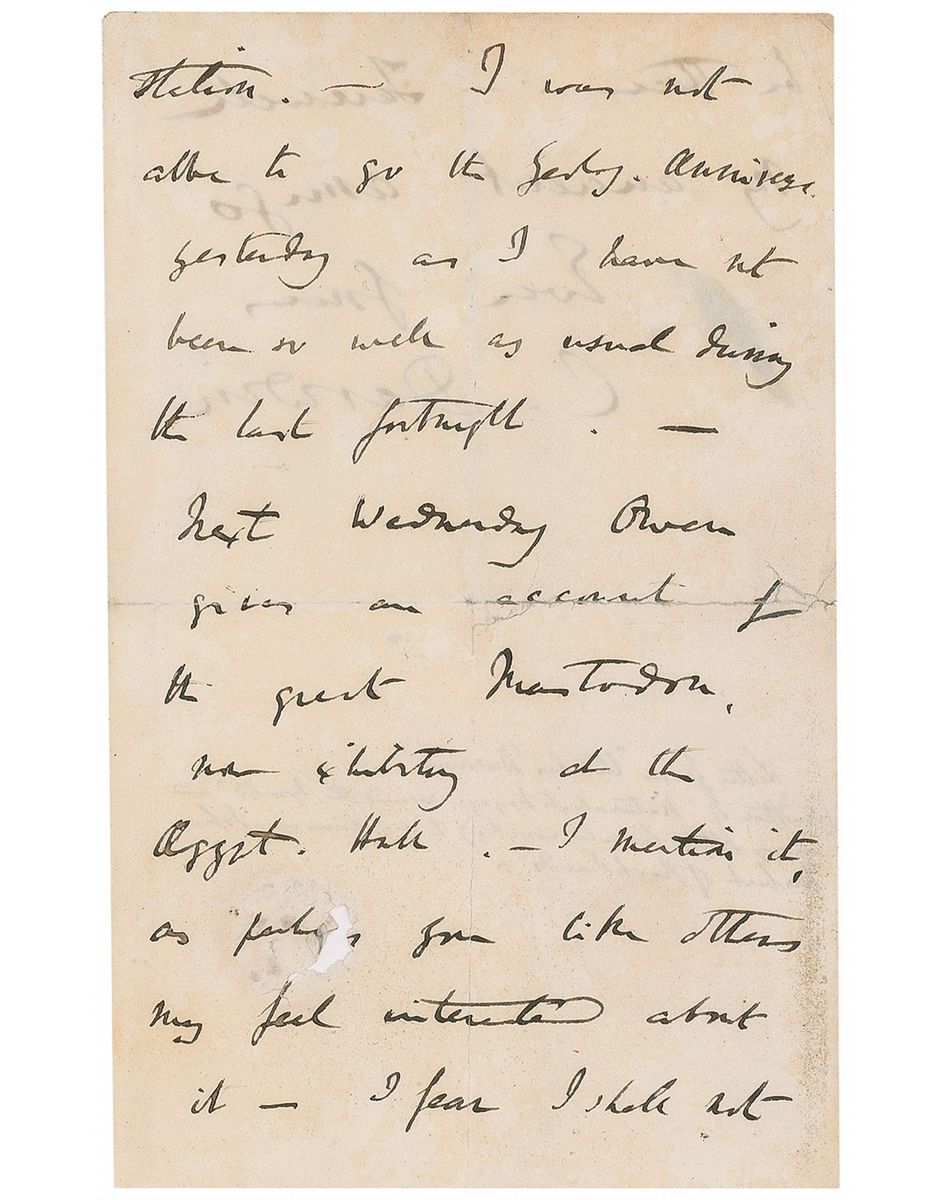 station. — I was not
able to go the Geolog. Annivers.
yesterday as I have not
been so well as usual during
the last fortnight . —
Next Wednesday Owen
gives an account of
the great Mastodon,
now exhibiting at the
Ægypt. Hall . — I mention it,
as perhaps you like others
may feel interested about
it — I fear I shall not